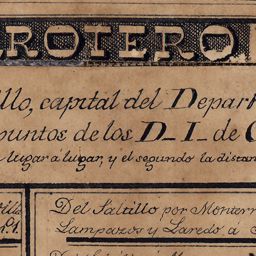 RROTERO
llo, capital del Depart
puntos de los D_ I_ de C
lugar a lugar, y el segundo la distan
Del Saltillo por Monterr
Lampazos y Laredo a